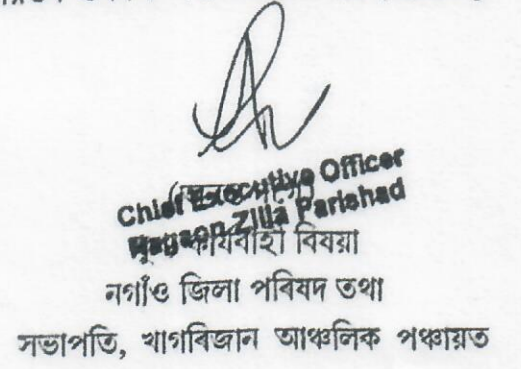 Chief Executive Officer
Nagaon Zilla Parishad
কাৰ্যবাহী বিষয়া
নগাঁও জিলা পৰিষদ তথা
সভাপতি, খাগৰিজান আঞ্চলিক পঞ্চায়ত